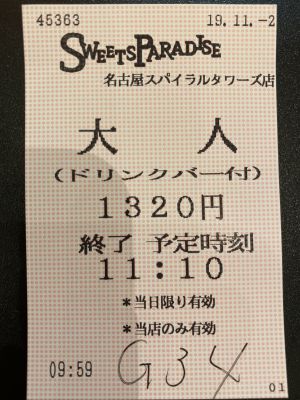 45363 19.11.-2
SWEETSPARADISE
名古屋スパイラルタワーズ店
大人
(ドリンクバー付)
1320円
終了予定時刻
11:10
*当日限り有効
*当店のみ有効
09:59 G34
01